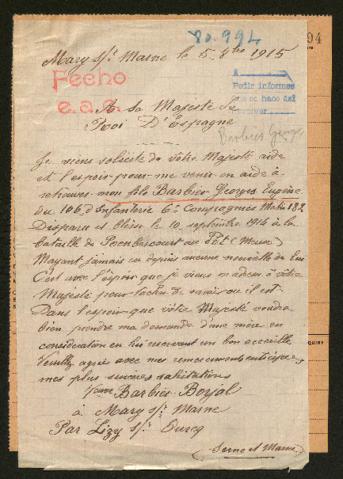 80.994
94
Mary s/. Marne le 15. 8bre 1915
Fecho
e.a.
A
Pedir informes
A Sa Majesté Le
Roi D'Espagne
Barbier Georges
Je viens solicité de vôtre Majesté aide
et l'espoir pour me venir en aide à
retrouver mon fils Barbier Georges Eugène
du 106 d'Infanterie 6e Compagnies Mle 182
Disparu et blésse le 10 septembre 1914 à la
bataille de (Meuse)
Mayant jamais eu depuis aucune nouvelle de Lui
C'est avec l'éspoir que je viens m'adressé à vôtre
Majesté pour tacher de savoir ou il est
Dans l'espoir que vôtre Majesté voudra
bien prendre ma demande d'une mère en
considération en lui reservant un bon accueille
Veuillez agréé avec mes remerciements anticipés
mes plus sincères salutations
Barbier-Borjal
à Mary s/. Marne
Par Lizy s/. Ourcq
(Seine et Marne)